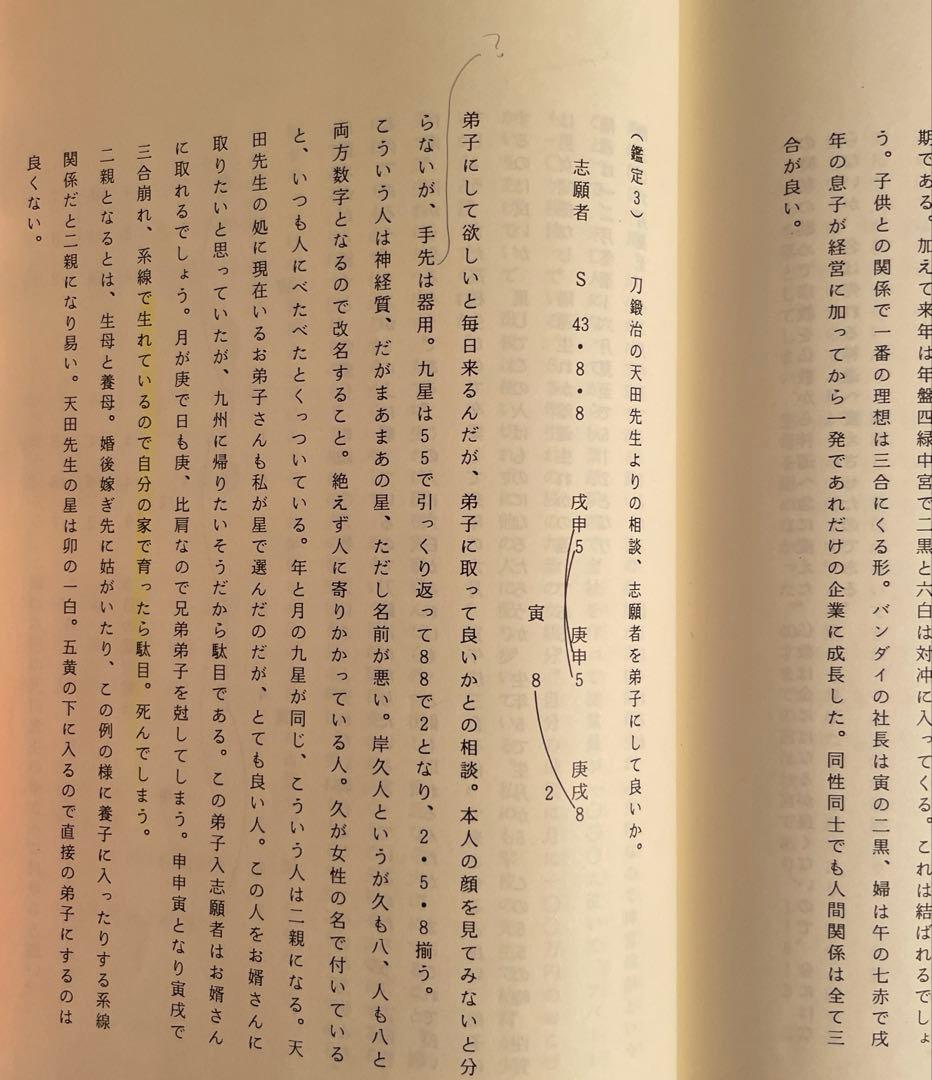 期である。加えて来年は年盤四緑中宮で二黒と六白は対冲に入ってくる。これは結ばれるでしょ
う。子供との関係で一番の理想は三合にくる形。バンダイの社長は寅の二黒、婦は午の七赤で戌
年の息子が経営に加ってから一発であれだけの企業に成長した。同性同士でも人間関係は全て三
合が良い。
（鑑定３）　刀鍛治の天田先生よりの相談、志願者を弟子にして良いか。
志願者　S　43・8・8　戌申5　庚申5　庚戌8
寅　8　2
?
弟子にして欲しいと毎日来るんだが、弟子に取って良いかとの相談。本人の顔を見てみないと分
らないが、手先は器用。九星は５５で引っくり返って８８で２となり、２・５・８揃う。
こういう人は神経質、だがまあまあの星、ただし名前が悪い。岸久人というが久も八、人も八と
両方数字となるので改名すること。絶えず人に寄りかかっている人。久が女性の名で付いている
と、いつも人にべたべたとくっついている。年と月の九星が同じ、こういう人は二親になる。天
田先生の処に現在いるお弟子さんも私が星で選んだのだが、とても良い人。この人をお婿さんに
取りたいと思っていたが、九州に帰りたいそうだから駄目である。この弟子入志願者はお婿さん
に取れるでしょう。月が庚で日も庚、比肩なので兄弟弟子を尅してしまう。申申寅となり寅戌で
三合崩れ、系線で生れているので自分の家で育ったら駄目。死んでしまう。
二親となるとは、生母と養母。婚後嫁ぎ先に姑がいたり、この例の様に養子に入ったりする系線
関係だと二親になり易い。天田先生の星は卯の一白。五黄の下に入るので直接の弟子にするのは
良くない。